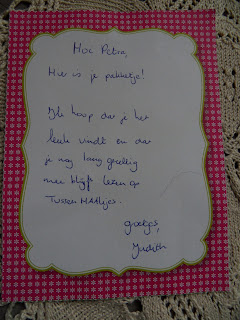 Hoi Petra,
Hier is je pakketje!
Ik hoop dat je het
leuk vindt en dat
je nog lang gezellig
mee blijft lezen op
Tussen Haakjes.
Groetjes,
Judith